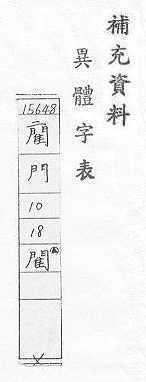 補充資料
異體字表
15648
門
10
18